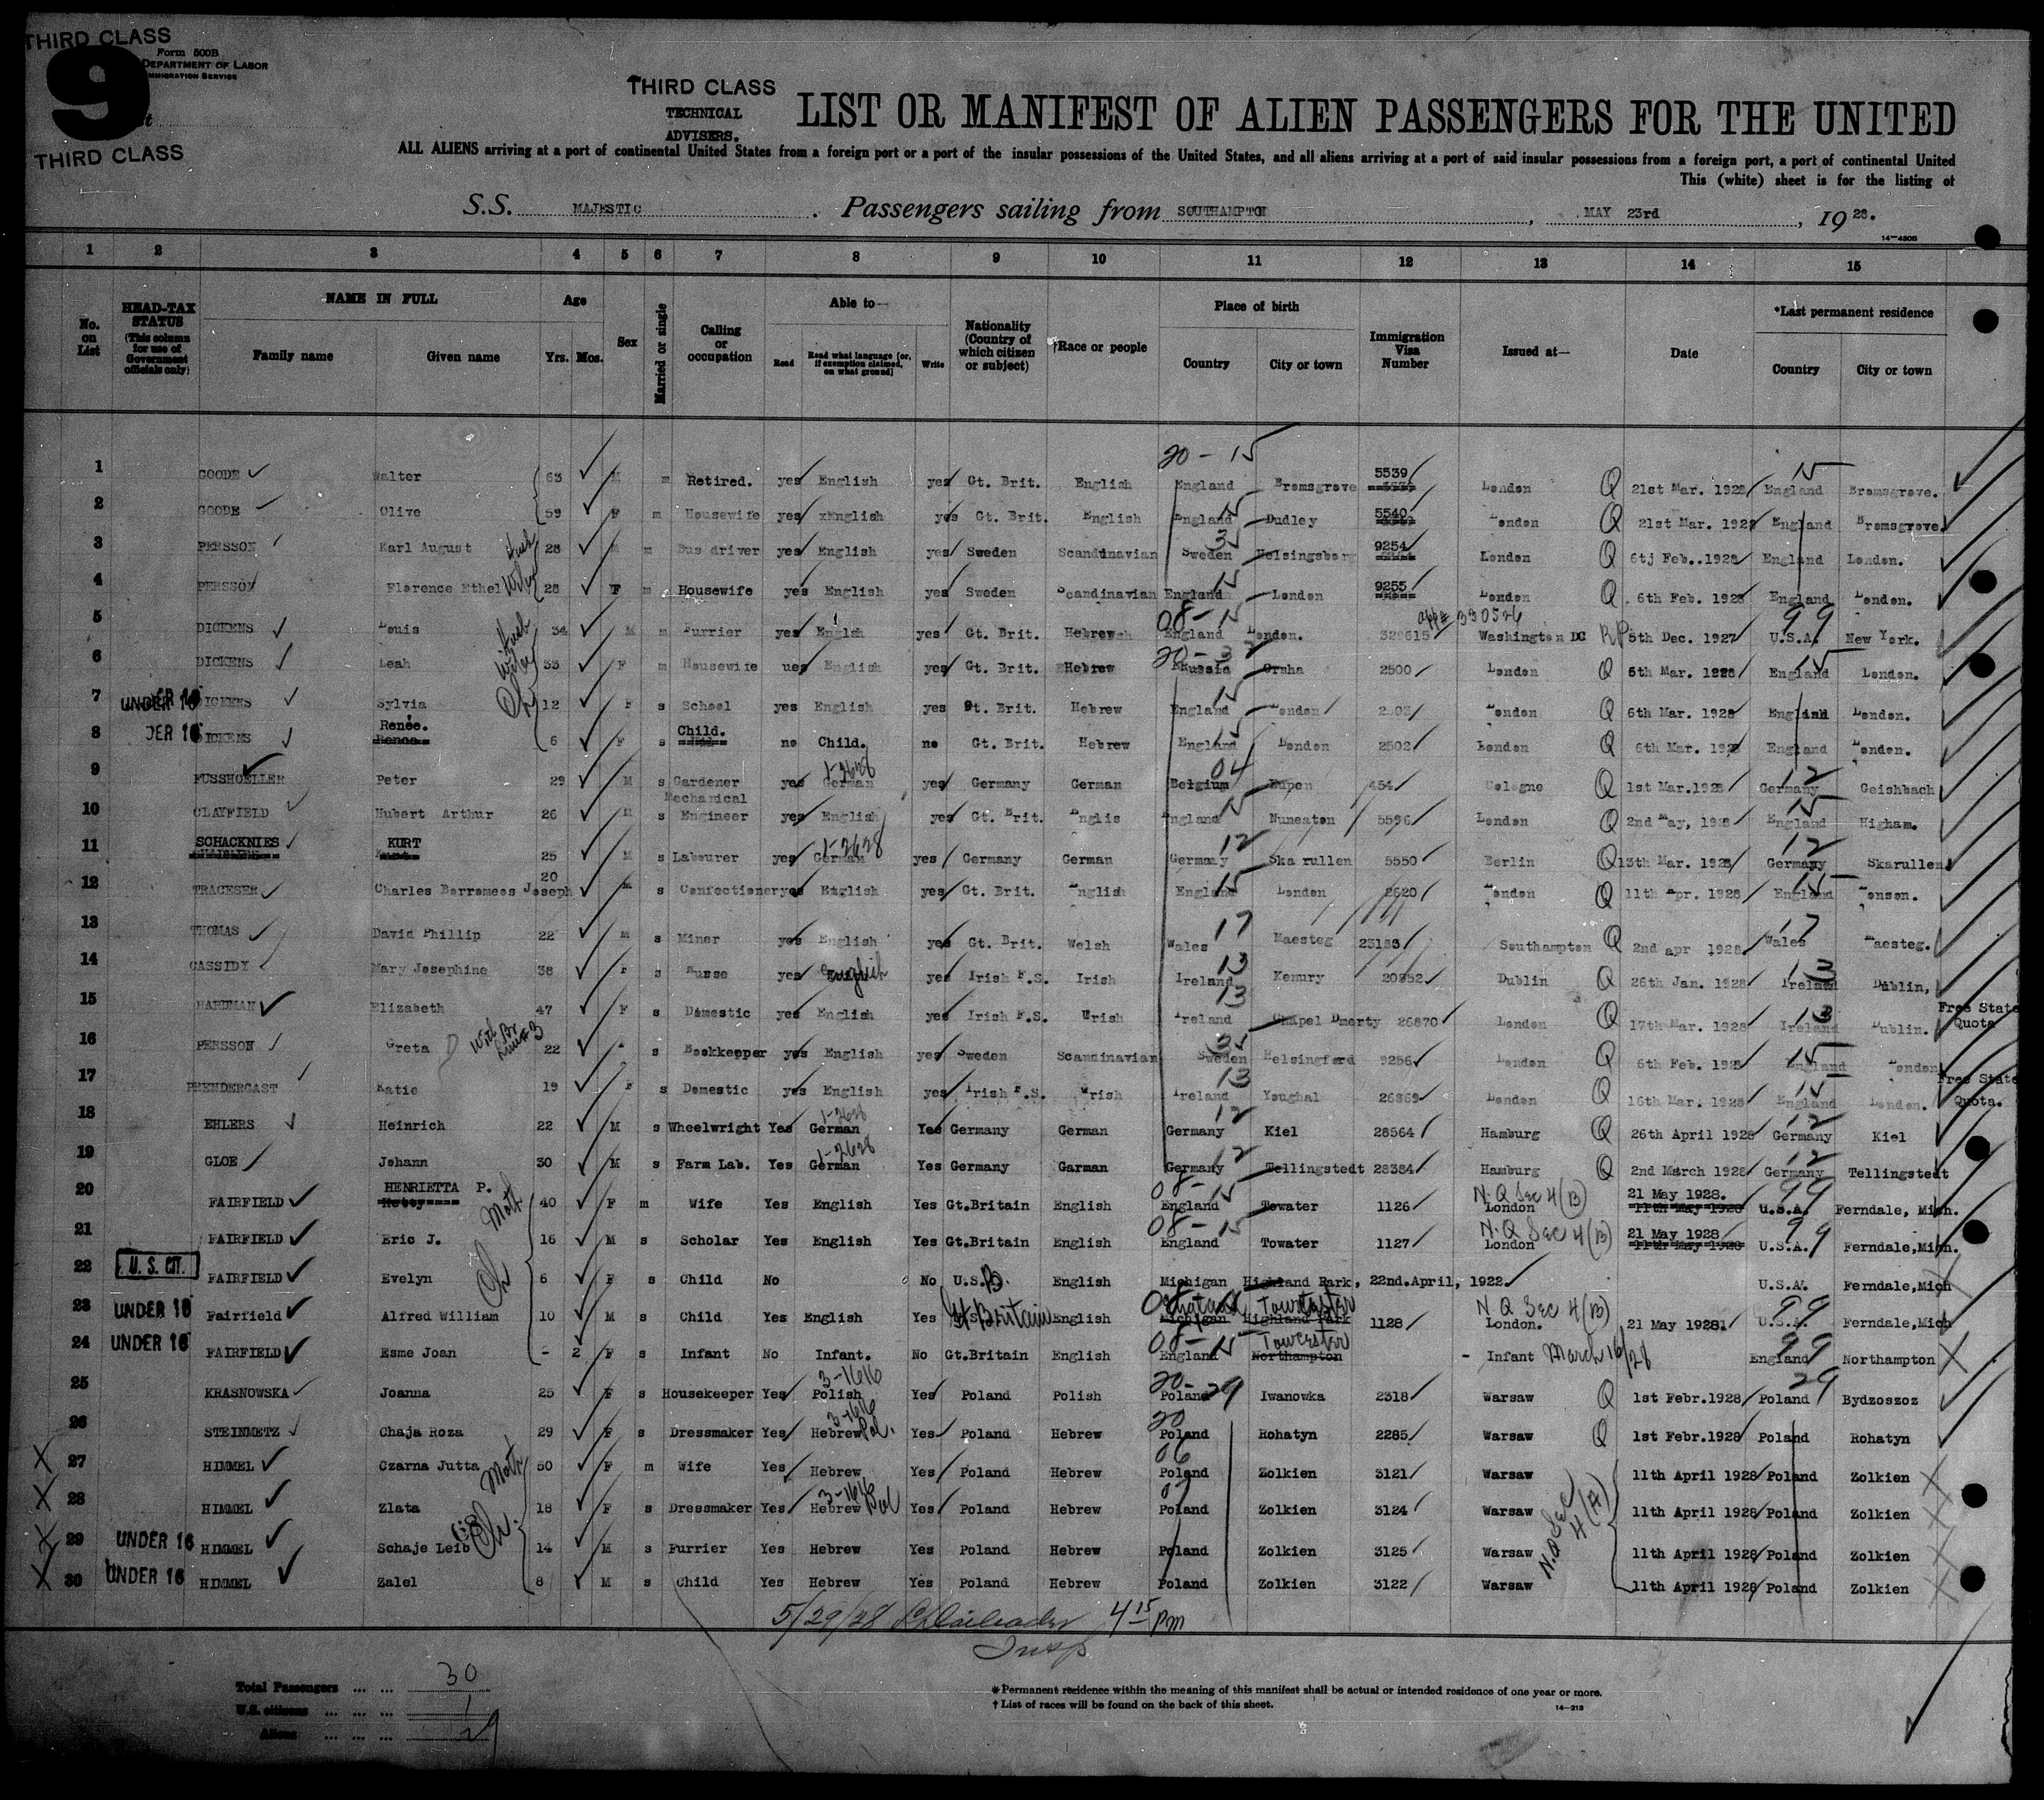 THIRD CLASS
Form 500B
DEPARTMENT OF LABOR
IMMIGRATION SERVICE
9
THIRD CLASS
THIRD CLASS
TECHNICAL
ADVISERS.
LIST OR MANIFEST OF ALIEN PASSENGERS FOR THE UNITED
ALL ALIENS arriving at a port of continental United States from a foreign port or a port of the insular possessions of the United States, and all aliens arriving at a port of said insular possessions from a foreign port, a port of continental United
This (white) sheet is for the listing of
S.S. MAJESTIC. Passengers sailing from SOUTHAMPTON, MAY 23rd, 1928.
14—430B
1 2 3 4 5 6 7 8 9 10 11 12 13 14 15
No. on List
HEAD-TAX STATUS (This column for use of Government officials only)
NAME IN FULL Family name Given name
Age Yrs. Mos.
Sex
Married or single
Calling or occupation
Able to— Read Read what language (or, if exemption claimed, on what ground) Write
Nationality (Country of which citizen or subject)
†Race or people
Place of birth Country City or town
Immigration Visa Number
Issued at—
Date
*Last permanent residence Country City or town
20 - 15 15
1 GOODE Walter 63 M m Retired. yes English yes Gt. Brit. English England Bromsgrove 5539 London Q 21st Mar. 1928 England Bromsgrove.
2 GOODE Olive 59 F m Housewife yes xEnglish yes Gt. Brit. English England 15 Dudley 5540 London Q 21st Mar. 1928 England Bromsgrove.
3 PERSSON Karl August Husb 28 M m Bus driver yes English yes Sweden Scandinavian Sweden Helsingsborg 9254 London Q 6tj Feb..1928 England London.
4 PERSSON Florence Ethel Wife 28 F m Housewife yes English yes Sweden Scandinavian England 15 London 9255 London Q 6th Feb. 1928 England London.
08 - 15 appx 330526 99
5 DICKENS Louis Husb 34 M m Furrier yes English yes Gt. Brit. Hebrew England London. 328615 Washington DC RP 5th Dec. 1927 U.S.A. New York.
6 DICKENS Leah Wife 33 F m Housewife ues English yes Gt. Brit. Hebrew Russia Orsha 2500 London Q 6th Mar. 1928 England 15 London.
7 UNDER 16 DICKENS Sylvia Ch 12 F s School yes English yes Gt. Brit. Hebrew England 15 London London Q 6th Mar. 1928 England London.
8 DICKENS Renée. 6 F s Child. no Child. no Gt. Brit. Hebrew England London 2502 London Q 6th Mar. 1928 England London.
9 FUSSHOELLER Peter 29 M s Gardener yes 1-2628 German yes Germany German Belgium 04 Eupen 454 Cologne Q 1st Mar.1928 Germany 12 Geishbach
10 CLAYFIELD Hubert Arthur 26 M s Mechanical Engineer yes English yes Gt. Brit. Englis England 15 Nuneaton 5596 London Q 2nd May, 1928 England 15 Higham.
11 SCHACKNIES KURT 25 M s Labourer yes 1-2628 German yes Germany German Germany 12 Ska rullen 5550 Berlin Q 13th Mar. 1928 Germany 12 Skarullen
12 TRACESER Charles Borromees Joseph 20 M s Confectioner yes English yes Gt. Brit. English England 15 London 2620 London Q 11th Apr. 1928 England 15
13 THOMAS David Phillip 22 M s Miner yes English yes Gt. Brit. Welsh Wales 17 Maesteg 23185 Southampton Q 2nd apr 1928 Wales 17 Maesteg.
14 CASSIDY Mary Josephine 38 F s Nurse yes English yes Irish F.S. Irish Ireland 13 Kenury 20352 Dublin Q 26th Jan. 1928 Ireland 13 Dublin,
15 HARDMAN Elizabeth 47 F s Domestic yes English yes Irish F.S. Wrish Ireland 13 Chapel Dmerty 26870 London Q 17th Mar. 1928 Ireland 13 Dublin. Free State Quota
16 PERSSON Greta With Br line 3 22 s Bookkeeper yes English yes Sweden Scandinavian Sweden Helsingford 9256 London Q 6th Feb. 1928 England 15 London
17 PRENDERCAST Katie 19 F s Domestic yes English yes Irish F.S. Wrish Ireland 13 Youghal 26869 London Q 16th Mar. 1928 England 15 London. Free State Quota.
18 EHLERS Heinrich 22 M s Wheelwright Yes 1-2628 German Yes Germany German Germany 12 Kiel 28564 Hamburg Q 26th April 1928 Germany 12 Kiel
19 GLOE Johann 30 M s Farm Lab. Yes 1-2628 German Yes Germany Garman Germany 12 Tellingstedt 28384 Hamburg Q 2nd March 1928 Germany 12 Tellingstedt
20 FAIRFIELD HENRIETTA P. Moth 40 F m Wife Yes English Yes Gt.Britain English 08-15 England Towater 1126 N.Q Sec 4(B) London 21 May 1928. 11th May 1928 99 U.S.A. Ferndale, Mich.
21 FAIRFIELD Eric J. 16 M s Scholar Yes English Yes Gt.Britain English 08-15 England Towater 1127 N.Q Sec 4(B) London 21 May 1928 11th May 1928 99 U.S.A. Ferndale,Mich.
22 U. S. CIT. FAIRFIELD Evelyn Ch 6 F s Child No No U.S. English Michigan Highland Park, 22nd.April, 1922. U.S.A. Ferndale,Mich
23 UNDER 16 Fairfield Alfred William 10 M s Child Yes English Yes Gt Britain English 08 England 15 Towcester Michigan Highland Park 1128 N Q Sec 4(B) London. 21 May 1928. 99 U.S.A. Ferndale,Mich
24 UNDER 16 FAIRFIELD Esme Joan - 2 F s Infant No Infant. No Gt.Britain English 08-15 England Towcester Northampton - Infant March 16/28 99 England Northampton
25 KRASNOWSKA Joanna 25 F s Housekeeper Yes 3-1616 Polish Yes Poland Polish 20-29 Poland Iwanowka 2318 Warsaw Q 1st Febr.1928 Poland 29 Bydzoszoz
26 STEINMETZ Chaja Roza 29 F s Dressmaker Yes 3-1616 Hebrew Pol. Yes Poland Hebrew 20 Poland Rohatyn 2285 Warsaw Q 1st Febr.1928 Poland Rohatyn
X 27 HIMMEL Czarna Jutta Moth 50 F m Wife Yes Hebrew Yes Poland Hebrew 06 Poland Zolkien 3121 Warsaw 11th April 1928 Poland Zolkien
X 28 HIMMEL Zlata 18 F s Dressmaker Yes 3-1616 Hebrew Pol Yes Poland Hebrew Poland Zolkien 3124 Warsaw N.Q Sec 4(A) 11th April 1928 Poland Zolkien
X 29 UNDER 16 HIMMEL Schaje Leib Ch. 14 M s Furrier Yes Hebrew Yes Poland Hebrew Poland Zolkien 3125 Warsaw 11th April 1928 Poland Zolkien
X 30 UNDER 16 HIMMEL Zalel 8 M s Child Yes Hebrew Yes Poland Hebrew Poland Zolkien 3122 Warsaw 11th April 1928 Poland Zolkien
5/29/28 4 15 pm
Insp
Total Passengers ... ... 30
U.S. citizens ... ... ... 1
Aliens ... ... ... 29
* Permanent residence within the meaning of this manifest shall be actual or intended residence of one year or more.
† List of races will be found on the back of this sheet.
14—213